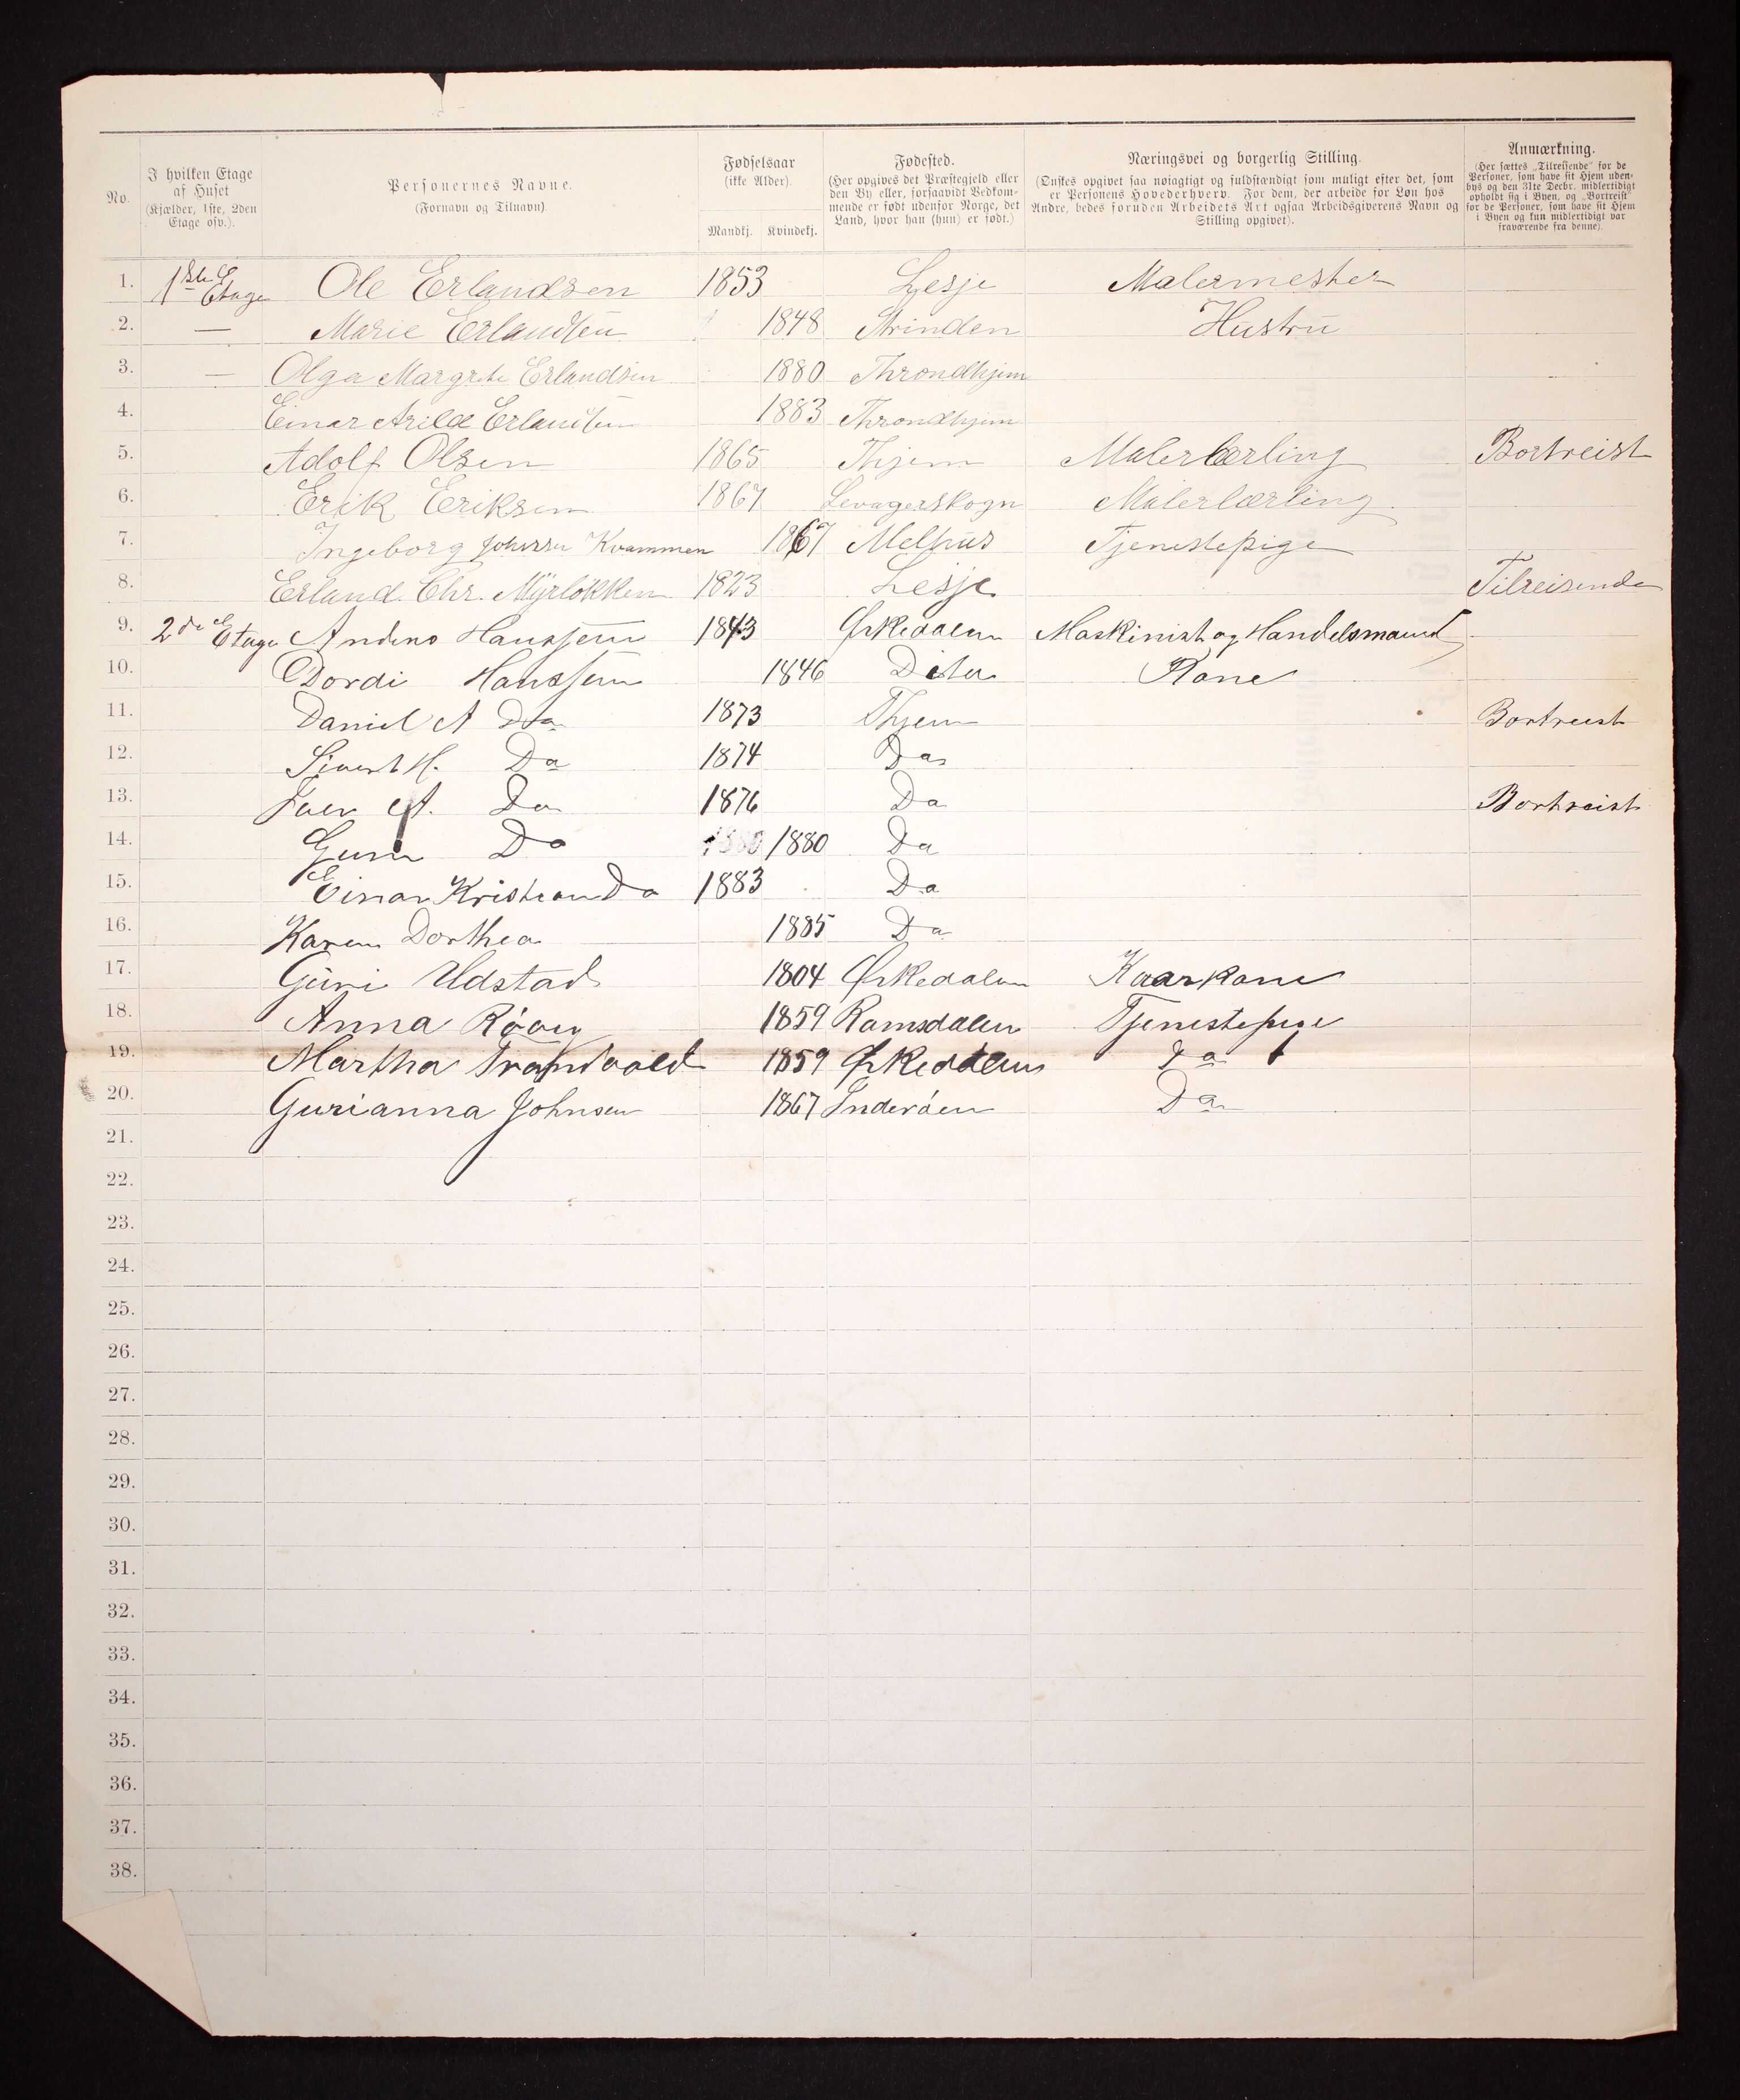 No.
I hvilken Etage
af Huset
(Kjælder, 1ste, 2den
Etage osv.).
Personernes Navne.
(Fornavn og Tilnavn).
Fødselsaar
(ikke Alder).
Mandkj. Kvindekj.
Fødested.
(Her opgives det Præstegjeld eller
den By eller, forsaavidt Vedkom-
mende er født udenfor Norge, det
Land, hvor han (hun) er født.)
Næringsvei og borgerlig Stilling.
(Ønskes opgivet saa nøiagtigt og fuldstændigt som muligt efter det, som
er Personens Hovederhverv. For dem, der arbeide for Løn hos
Andre, bedes foruden Arbeidets Art ogsaa Arbeidsgiverens Navn og
Stilling opgivet).
Anmærkning.
(Her sættes „Tilreisende" for de
Personer, som have sit Hjem uden-
bys og den 31te Decbr. midlertidigt
opholdt sig i Byen, og „Bortreist"
for de Personer, som have sit Hjem
i Byen og kun midlertidigt var
fraværende fra denne).
1. 1ste Etage Ole Erlandsen 1853 Lesje Malermester
2. — Marie Erlandsen 1848 Strinden Hustru
3. — Olga Margrete Erlandsen 1880 Throndhjem
4. Einar Arild Erlandsen 1883 Throndhjem
5. Adolf Olsen 1865 Thjem Malerlærling Bortreist
6. Erik Eriksen 1867 Levagerskogn Malerlærling
7. Ingeborg Johnsen Kvammen 1867 Melhus Tjenestepige
8. Erland Chr. Myrløkken 1823 Lesje Tilreisende
9. 2de Etage Anders Hanssen 1843 Ørkedalen Maskinist og Handelsmand
10. Dordi Hanssen 1846 Dito Kone
11. Daniel A Do 1873 Thjem Bortreist
12. Sivert H. Do 1874 Do
13. A. Do 1876 Do Bortreist
14. Guri Do 1880 Do
15. Einar Kristian Do 1883 Do
16. Karen Dorthea 1885 Do
17. Guri Udstad 1804 Ørkedalen Kaarkone
18. Anna 1859 Romsdalen Tjenestepige
19. Martha 1859 Ørkedalen Do
20. Gurianna Johnsen 1867 Inderøen Do
21.
22.
23.
24.
25.
26.
27.
28.
29.
30.
31.
32.
33.
34.
35.
36.
37.
38.